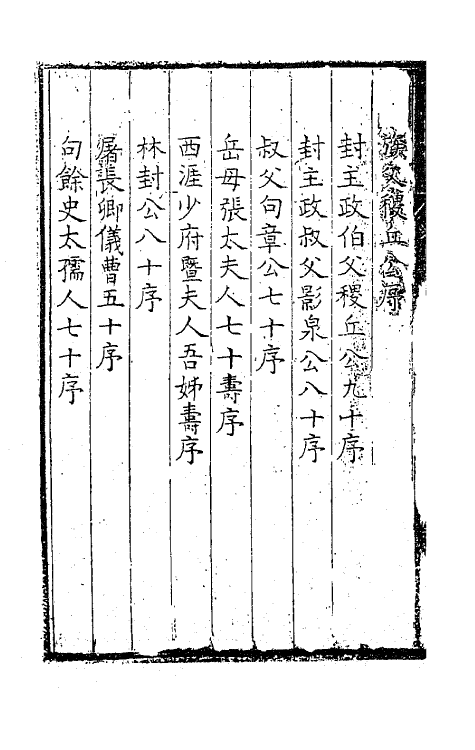 族父稷丘公序
封主政伯父稷丘公九十序
封主政叔父影泉公八十序
叔父句章公七十序
岳母張太夫人七十壽序
西涯少府暨夫人吾姊壽序
林封公八十序
屠長卿儀曹五十序
句餘史太孺人七十序